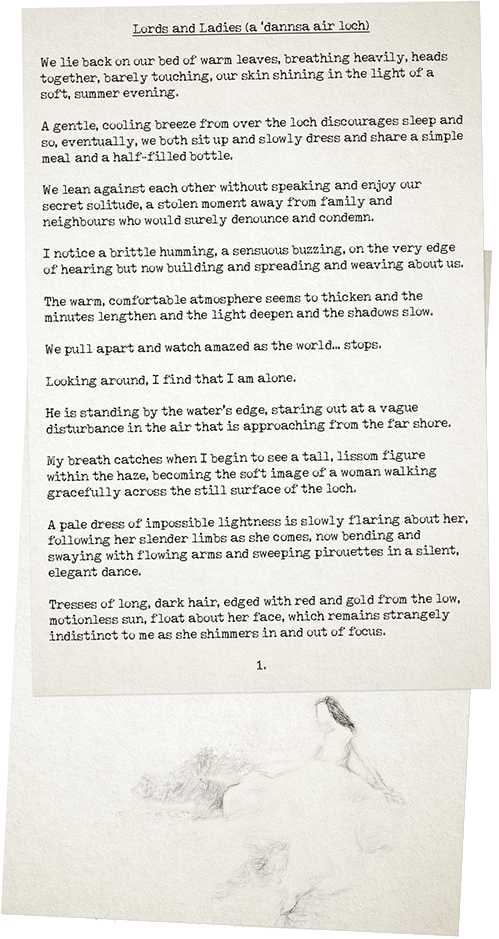 Lords and Ladies (a 'dannsa air loch)
We lie back on our bed of warm leaves, breathing heavily, heads
together, barely touching, our skin shining in the light of a
soft, summer evening.
A gentle, cooling breeze from over the loch discourages sleep and
so, eventually, we both sit up and slowly dress and share a simple
meal and a half-filled bottle.
We lean against each other without speaking and enjoy our
secret solitude, a stolen moment away from family and
neighbours who would surely denounce and condemn.
I notice a brittle humming, a sensuous buzzing, on the very edge
of hearing but now building and spreading and weaving about us.
The warm, comfortable atmosphere seems to thicken and the
minutes lengthen and the light deepen and the shadows slow.
We pull apart and watch amazed as the world... stops.
Looking around, I find that I am alone.
He is standing by the water's edge, staring out at a vague
disturbance in the air that is approaching from the far shore.
My breath catches when I begin to see a tall, lissom figure
within the haze, becoming the soft image of a woman walking
gracefully across the still surface of the loch.
A pale dress of impossible lightness is slowly flaring about her,
following her slender limbs as she comes, now bending and
swaying with flowing arms and sweeping pirouettes in a silent,
elegant dance.
Tresses of long, dark hair, edged with red and gold from the low,
motionless sun, float about her face, which remains strangely
indistinct to me as she shimmers in and out of focus.
1.